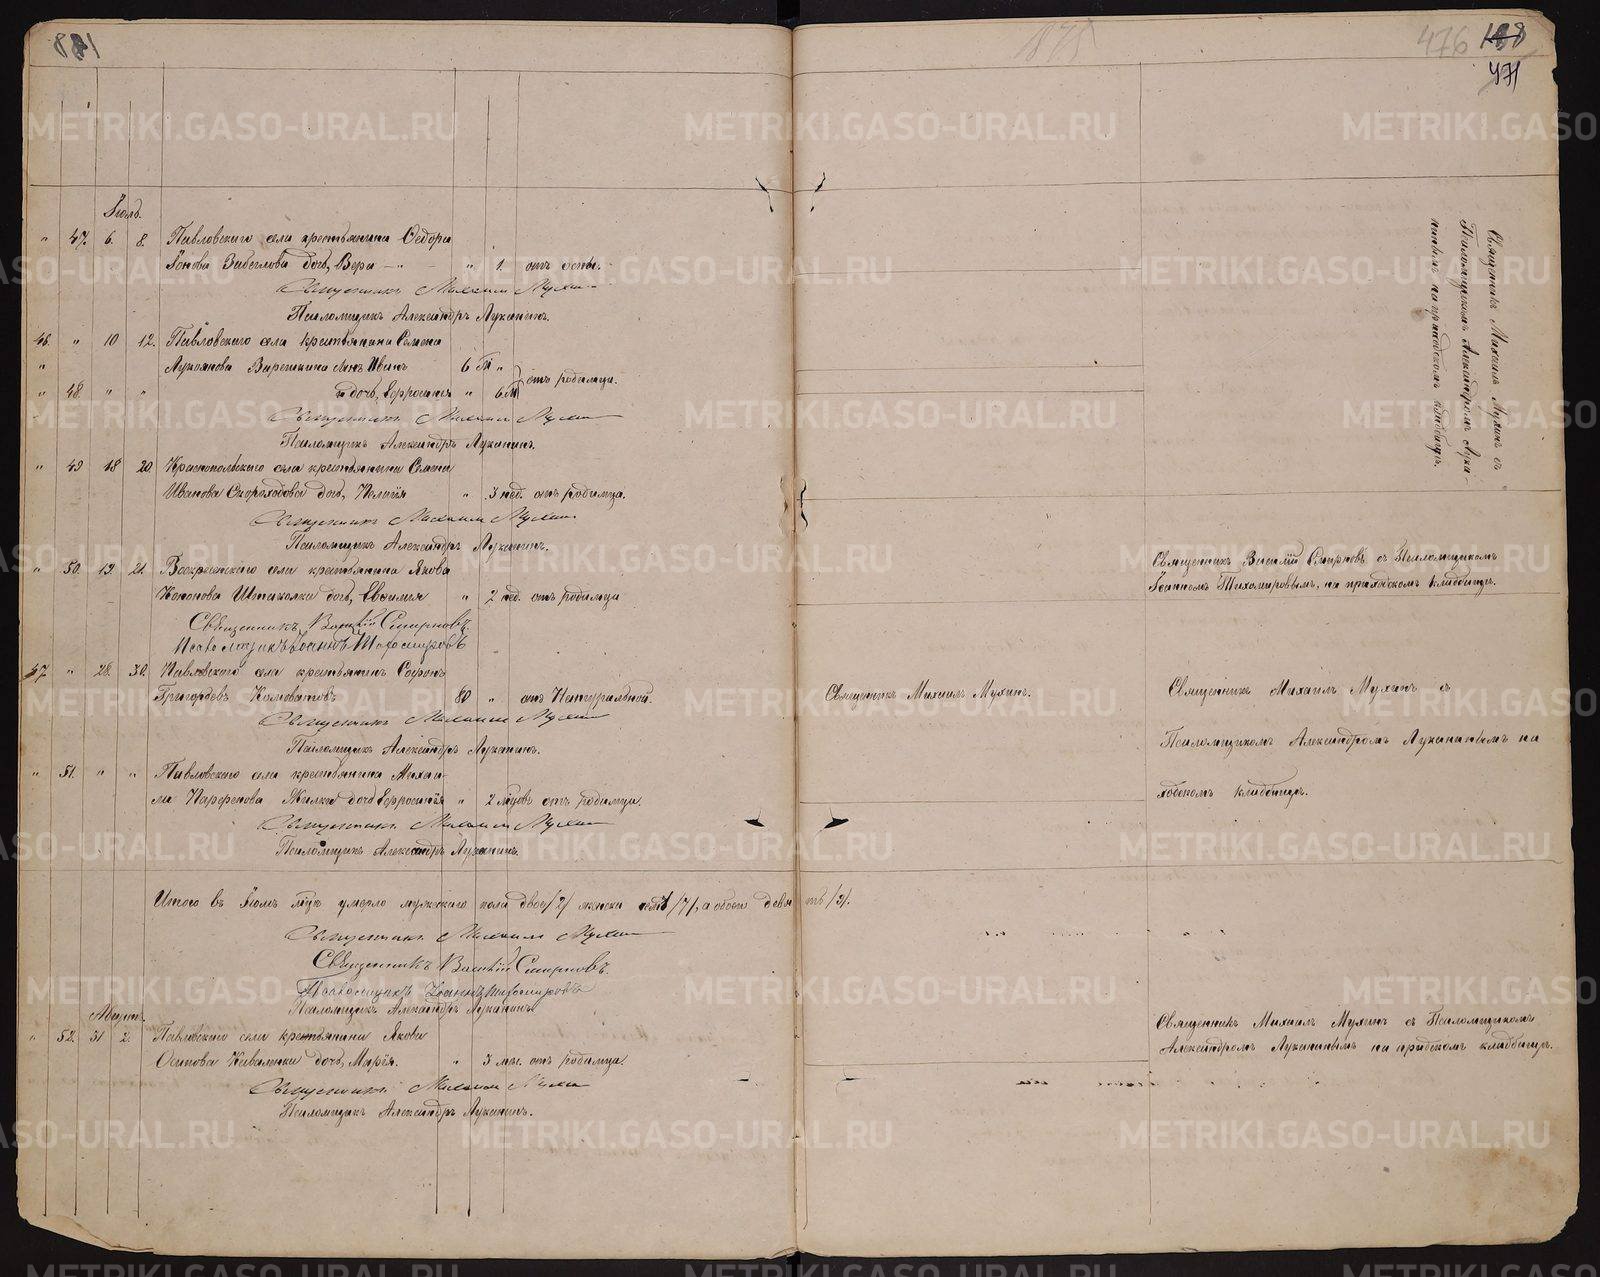 188
1875
476 188
471
Іюль.
" 47. 6. 8. Павловскаго села крестьянина Ѳедора
Іонова дочь Вера — " — " 1. отъ оспы.
Священникъ Михаилъ Мухинъ
Псаломщикъ Александръ Луканинъ.
46. " 10 12. Павловскаго села крестьянина Семена
" Лукоянова сынъ Иванъ 6 "
" 48. " " и дочь Ефросинія " 6 отъ родимца.
Священникъ Михаилъ Мухинъ
Псаломщикъ Александръ Луканинъ.
" 49 18 20. Краснопольскаго села крестьянина Семена
Иванова Скороходова дочь Пелагія " 3 нед. отъ родимца.
Священникъ Михаилъ Мухинъ
Псаломщикъ Александръ Луканинъ.
" 50. 19. 21. Воскресенскаго села крестьянина Якова
Кононова дочь Евфимія " 2 нед. отъ родимца
Священникъ Василій Смирновъ
Псаломщикъ Іоаннъ Тихомировъ
47. " 28. 30. Павловскаго села крестьянинъ Софонъ
Григорьевъ Коноваловъ 80 " отъ Натуральной.
Священникъ Михаилъ Мухинъ
Псаломщикъ Александръ Луканинъ.
" 51. " " Павловскаго села крестьянина Михаи-
ла Парфенова Жилки дочь Ефросинія " 2 мѣсяцовъ отъ родимца.
Священникъ Михаилъ Мухинъ
Псаломщикъ Александръ Луканинъ.
Итого въ Іюлѣ м-цѣ умерло мужескаго пола двое /2/ женска семь /7/, а обоего девять /9/.
Священникъ Михаилъ Мухинъ
Священникъ Василій Смирновъ.
Псаломщикъ Іоаннъ Тихомировъ
Псаломщикъ Александръ Луканинъ
Августъ.
" 52. 31 2. Павловскаго села крестьянина Якова
Осипова Коваленки дочь Марія. " 3 мѣс. отъ родимца.
Священникъ Михаилъ Мухинъ
Псаломщикъ Александръ Луканинъ.
Священникъ Михаилъ Мухинъ съ
Псаломщикомъ Александромъ Лука-
нинымъ на приходскомъ кладбищѣ.
Священникъ Василій Смирновъ съ Псаломщикомъ
Іоанномъ Тихомировымъ, на приходскомъ кладбищѣ.
Священникъ Михаилъ Мухинъ.
Священникъ Михаилъ Мухинъ съ
Псаломщикомъ Александромъ Луканинымъ на
ходскомъ кладбищѣ.
Священникъ Михаилъ Мухинъ съ Псаломщикомъ
Александромъ Луканинымъ на прихдскомъ кладбищѣ.
METRIKI.GASO-URAL.RU